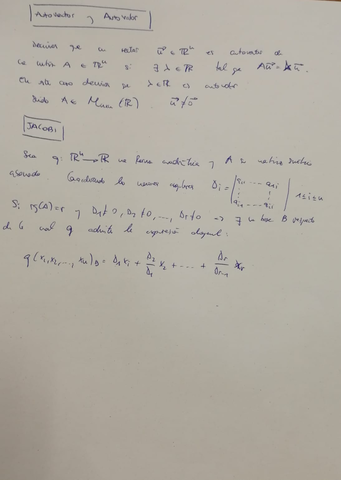 Autovector y Autovalor
Decimos que un vector u⃗ ∈ ℝⁿ es autovector de
la matriz A ∈ ℝⁿ si ∃ λ ∈ ℝ tal que Au⃗ = λu⃗.
En este caso decimos que λ ∈ ℝ es autovalor
Dado A ∈ Mnxn (ℝ) u⃗ ≠ 0⃗
JACOBI
Sea q: ℝⁿ → ℝ una forma cuadrática y A su matriz simétrica
asociada. Considerando los menores Di = | a11 ... a1i ; ai1 ... aii | 1≤i≤n
Si rg(A)=r y D1≠0, D2≠0, ..., Dr≠0 => ∃ una base B respecto
de la cual q admite la expresión diagonal:
q(x1, x2, ..., xn)B = D1 x1 + D2/D1 x2 + .... + Dr/Dr-1 xr